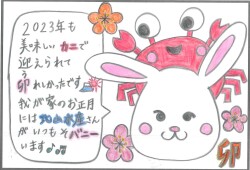 2023年も
美味しいカニで
迎えられて
う卯れしかったです
我が家のお正月
には丸山水産さん
がいつもそバニー
います♪♪
卯